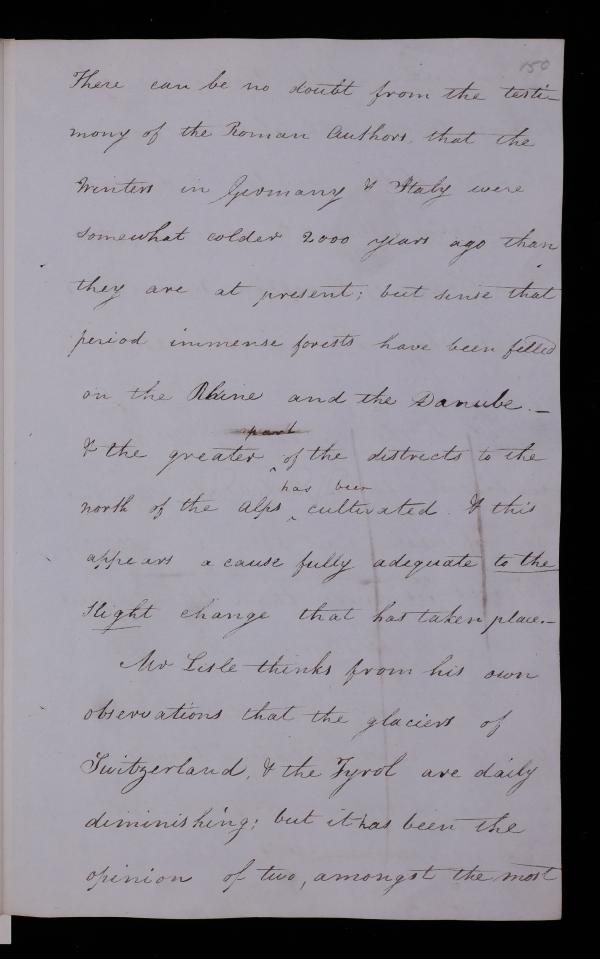 150
There can be no doubt from the testi-
mony of the Roman Authors, that the
Winters in Germany & Italy were
somewhat colder 2000 years ago than
they are at present; but sinse that
period immense forests have been felled
on the Rhine and the Danube. _
part
& the greater ^ of the districts to the
has been
north of the Alps ^ cultivated. & this
appears a cause fully adequate to the
slight change that has taken place.-
Mr Lisle thinks from his own
observations that the glaciers of
Switzerland, & the Tyrol are daily
diminishing; but it has been the
opinion of two, amongst the most